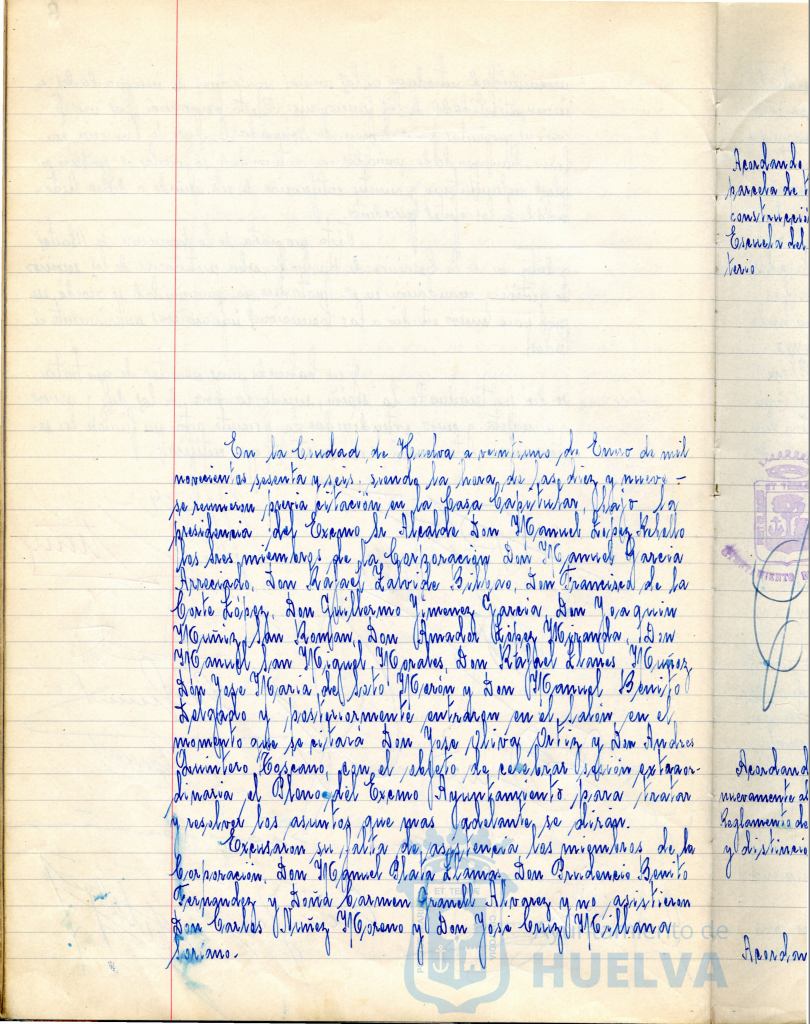 En la Ciudad de Huelva a veintiuno de Enero de mil
novecientos sesenta y seis, siendo la hora de las diez y nueve -
se reunieron previa citación en la Casa Capitular, bajo la
presidencia del Excmo Sr Alcalde Don Manuel López Rebollo
los sres miembros de la Corporación Don Manuel Garcia
Arreciado, Don Rafael Zalvide Bilbao, Don Francisco de la
Corte López, Don Guillermo Jimenez Garcia, Don Joaquin
Muñiz San Roman, Don Amador López Miranda, Don
Manuel San Miguel Morales, Don Rafael Llanes Muñoz
Don Jose Maria de Soto Merón y Don Manuel Benito
Delgado y posteriormente entraron en el salón, en el
momento que se citará Don Jose Oliva Ortiz y Don Andres
Quintero Toscano, con el objeto de celebrar sesión extraor-
dinaria el Pleno del Excmo Ayuntamiento para tratar
y resolver los asuntos que mas adelante se diran.
Excusaron su falta de asistencia los miembros de la
Corporación, Don Manuel Plata Llamas Don Prudencio Benito
Fernandez y Doña Carmen Granell Alvarez y no asistieron
Don Carlos Nuñez Moreno y Don José Cruz Millana
Soriano.
Ayuntamiento de
HUELVA
Acordando
parcela de t
construcció
Escuela del
terio
Acordand
nuevamente al
Reglamento de
y distincio
Acordan